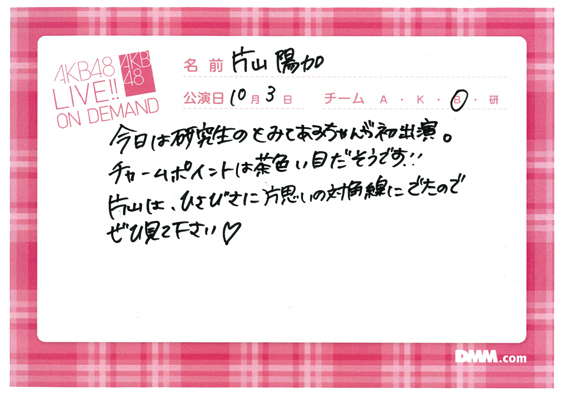 AKB48
LIVE!!
ON DEMAND
AKB
48
名前 片山陽加
公演日 10月3日 チーム A・K・B・研
今日は研究生のとみてあろちゃんが初出演。
チャームポイントは茶色い目だそうです!!
片山は、ひさびさに片思いの対角線にでたので
ぜひ見て下さい♡
DMM.com